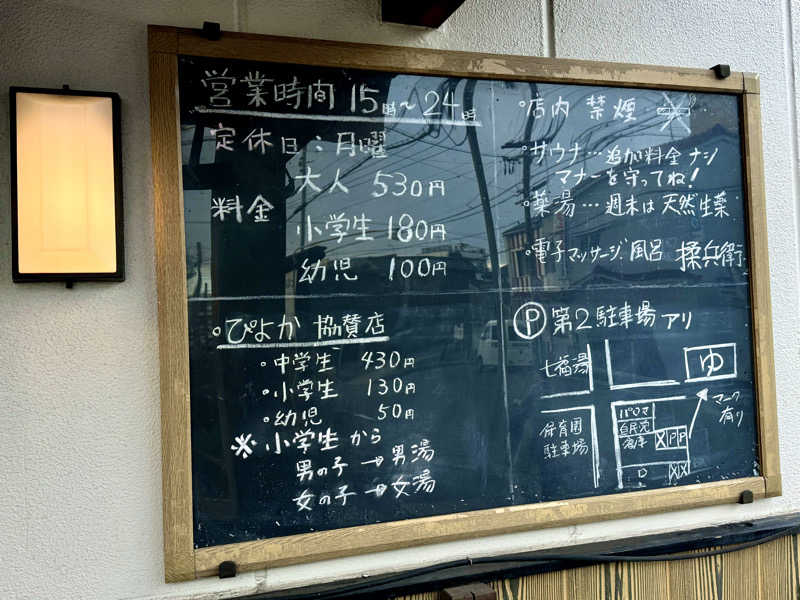 営業時間 15時~24時
定休日:月曜
料金 大人 530円
小学生 180円
幼児 100円
。ぴよか 協賛店
。中学生 430円
。小学生 130円
。幼児 50円
※小学生から
男の子→男湯
女の子→女湯
。店内 禁煙
。サウナ…追加料金ナシ
マナーを守ってね!
。薬湯…週末は天然生薬
。電子マッサージ風呂 揉兵衛
Ⓟ第2駐車場アリ
七福湯
ゆ
マーク
有り
保育園
駐車場
パロマ
P P